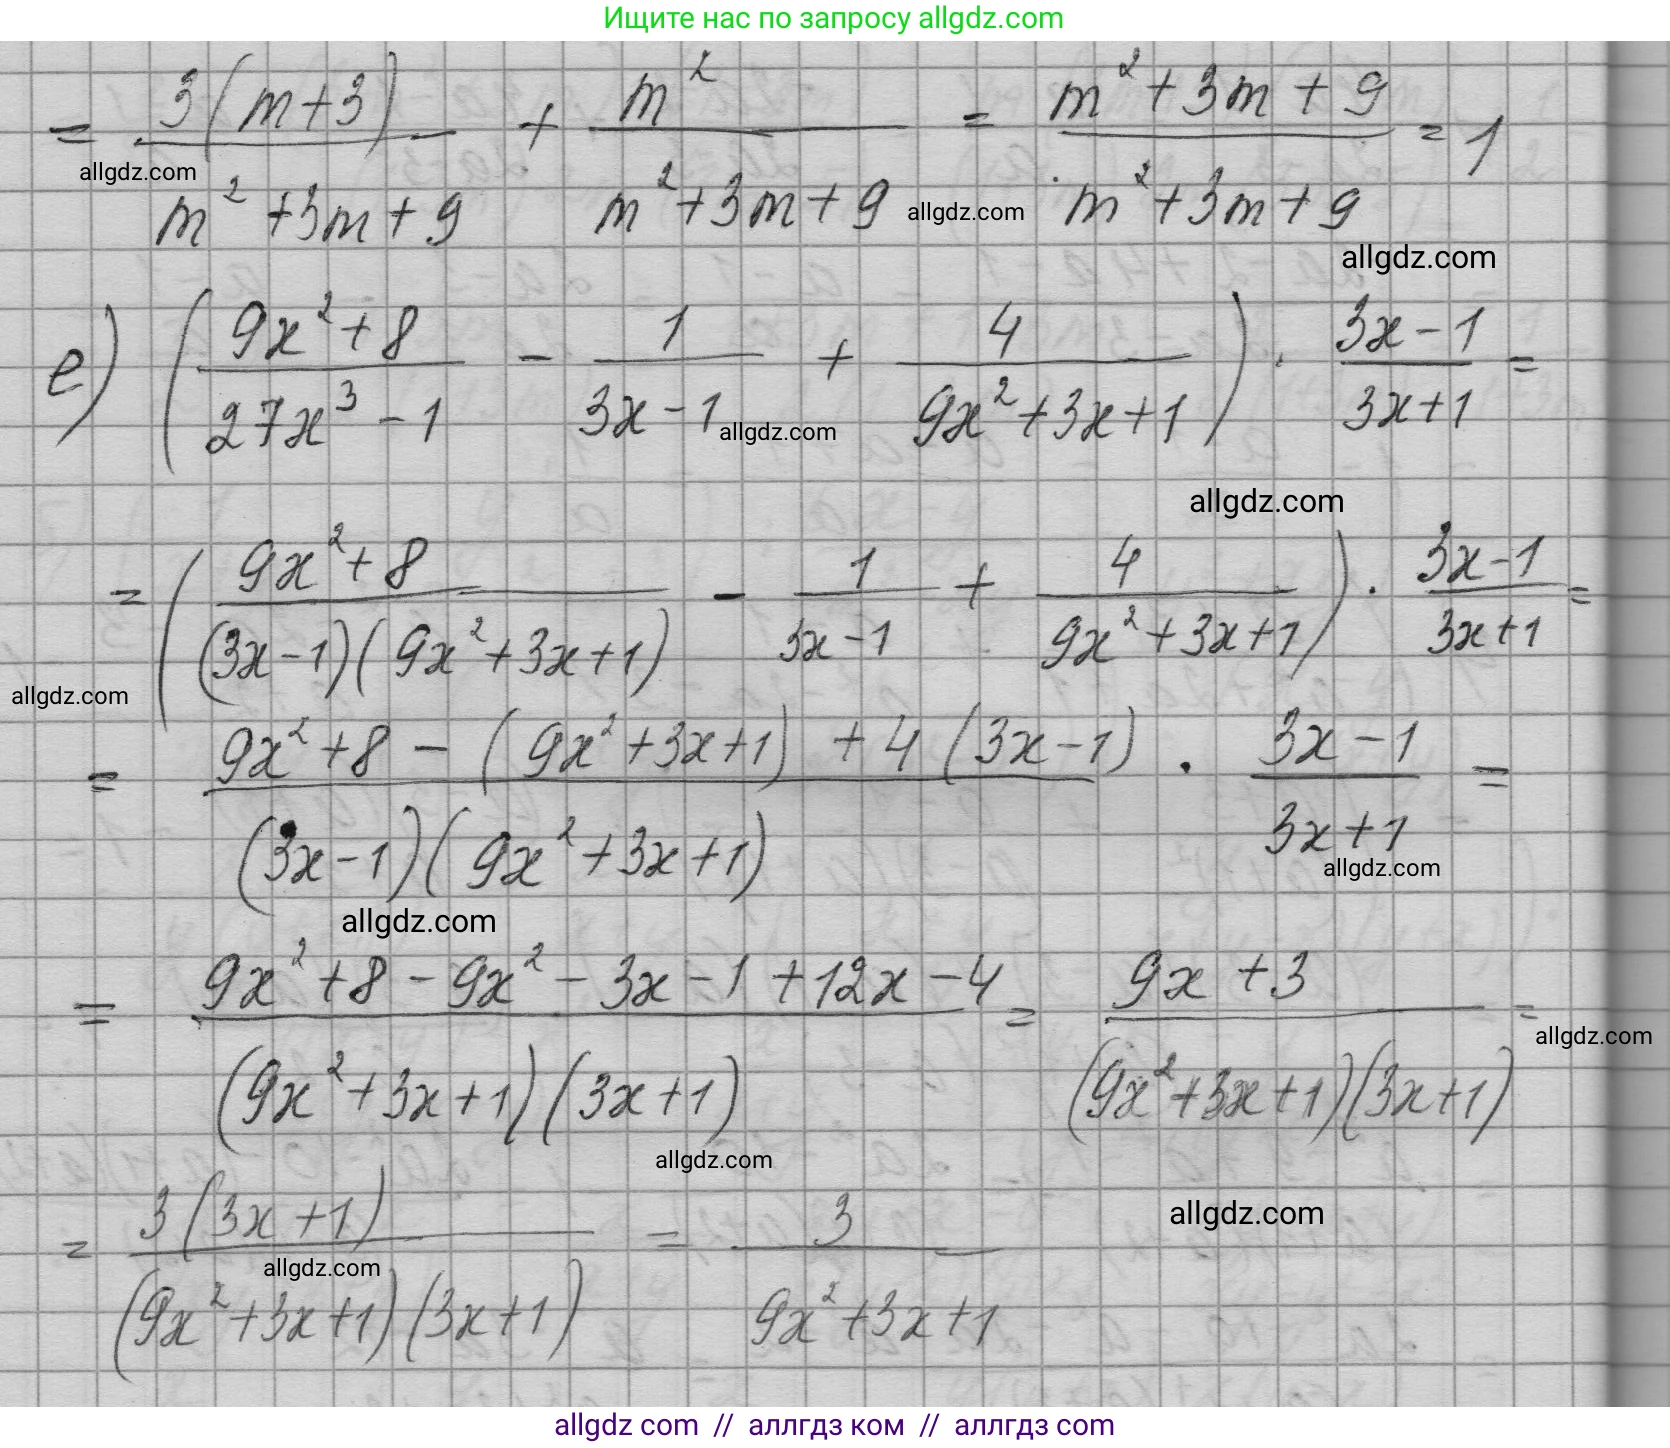 Ищите нас по запросу allgdz.com
= 3(m+3)/(m²+3m+9) + m²/(m²+3m+9) = (m²+3m+9)/(m²+3m+9) = 1
allgdz.com
allgdz.com
allgdz.com
е) ((9x²+8)/(27x³-1) - 1/(3x-1) + 4/(9x²+3x+1)) · (3x-1)/(3x+1) =
allgdz.com
allgdz.com
= ((9x²+8)/((3x-1)(9x²+3x+1)) - 1/(3x-1) + 4/(9x²+3x+1)) · (3x-1)/(3x+1) =
allgdz.com
= (9x²+8-(9x²+3x+1)+4(3x-1))/((3x-1)(9x²+3x+1)) · (3x-1)/(3x+1) =
allgdz.com
allgdz.com
= (9x²+8-9x²-3x-1+12x-4)/((9x²+3x+1)(3x+1)) = (9x+3)/((9x²+3x+1)(3x+1)) =
allgdz.com
allgdz.com
= 3(3x+1)/((9x²+3x+1)(3x+1)) = 3/(9x²+3x+1)
allgdz.com
allgdz.com
allgdz com // аллгдз ком // аллгдз com